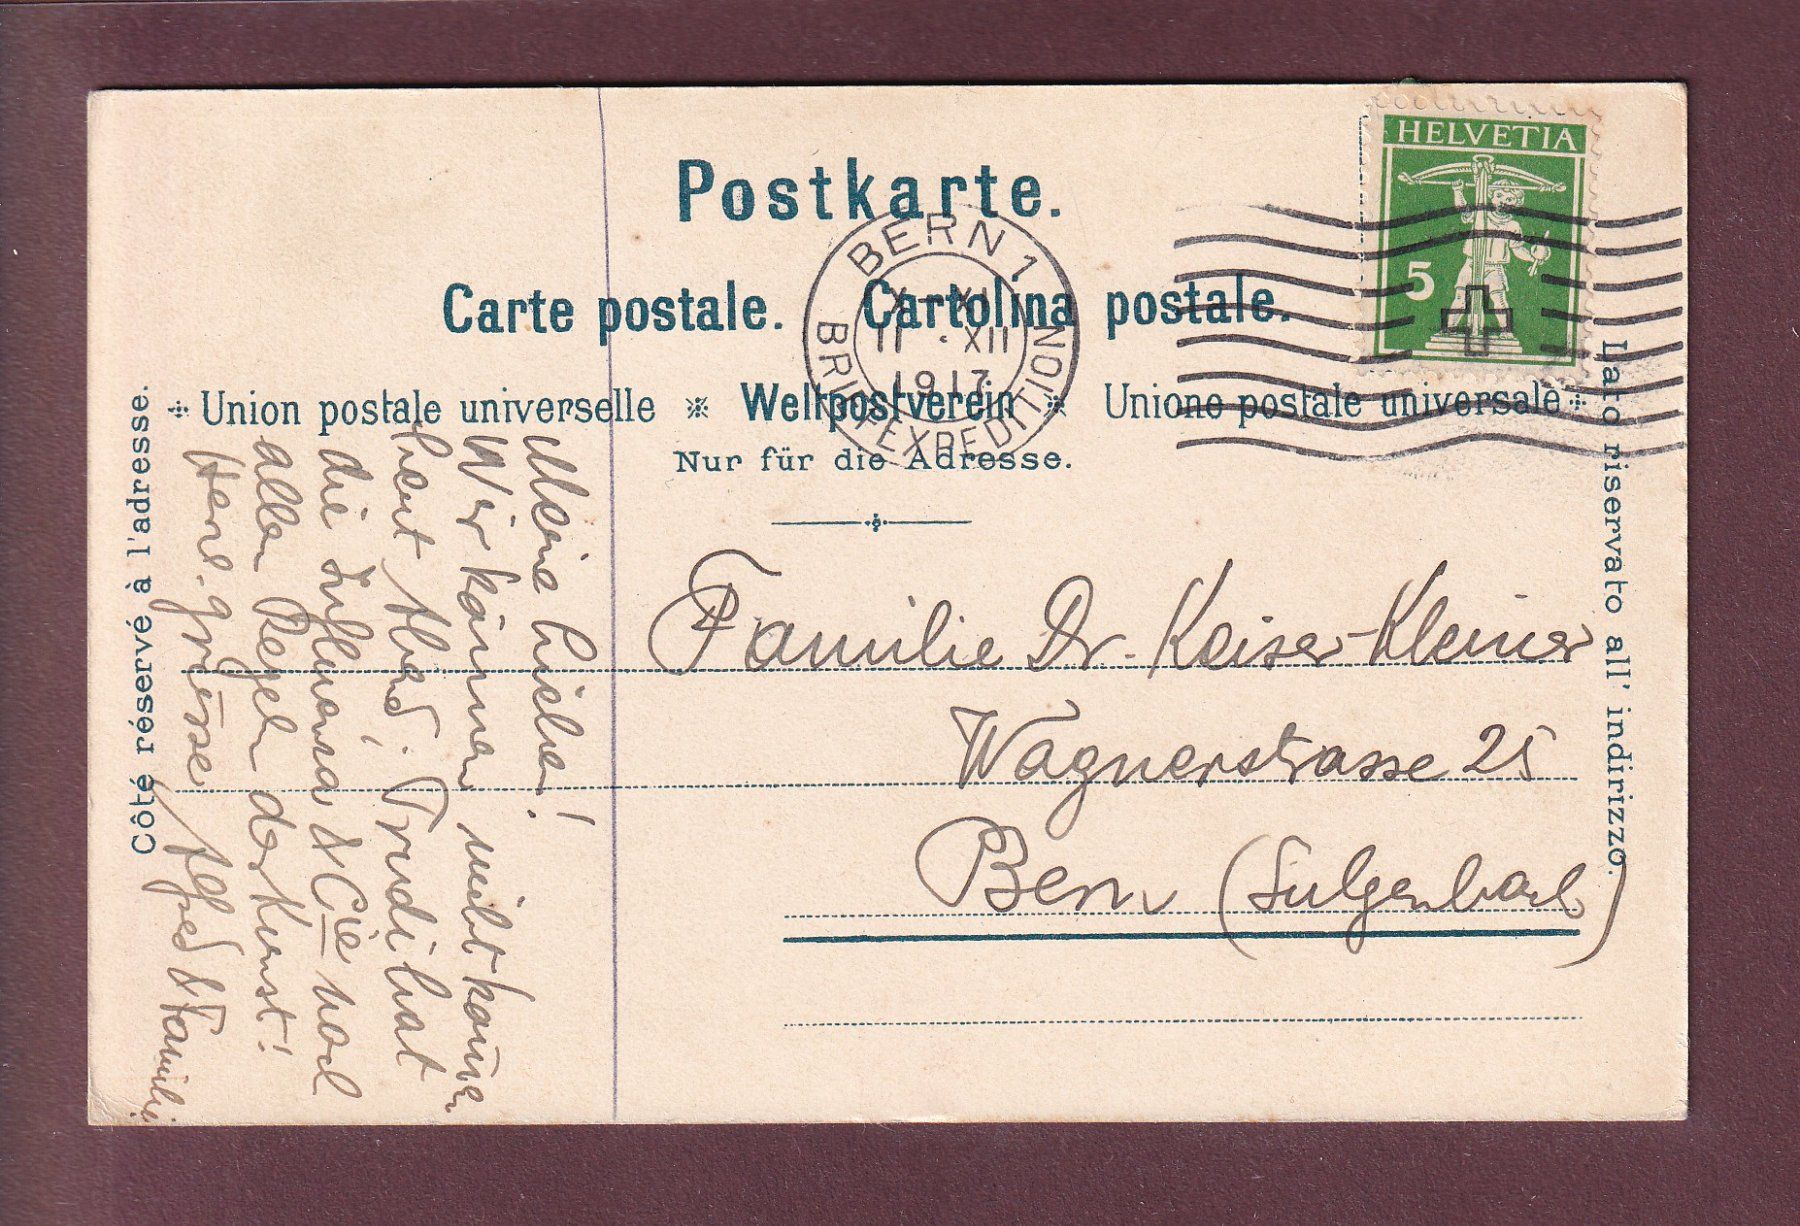 Postkarte.
Carte postale. Cartolina postale.
Union postale universelle Weltpostverein Unione postale universale
Nur für die Adresse.
Côté réservé à l'adresse.
Lato riservato all' indirizzo.
HELVETIA
5
BERN 1
X-XI
11 · XII
1917
BRIEFEXPEDITION
Familie Dr. Kaiser-Kleiner
Wagnerstrasse 25
Bern (Sulgenbach)
Meine Lieben!
Wir können nicht kommen
heut Abend; Trudi hat
die Influenza & Cie nach
allen Regeln der Kunst!
Herzl. Grüsse Alfred & Familie